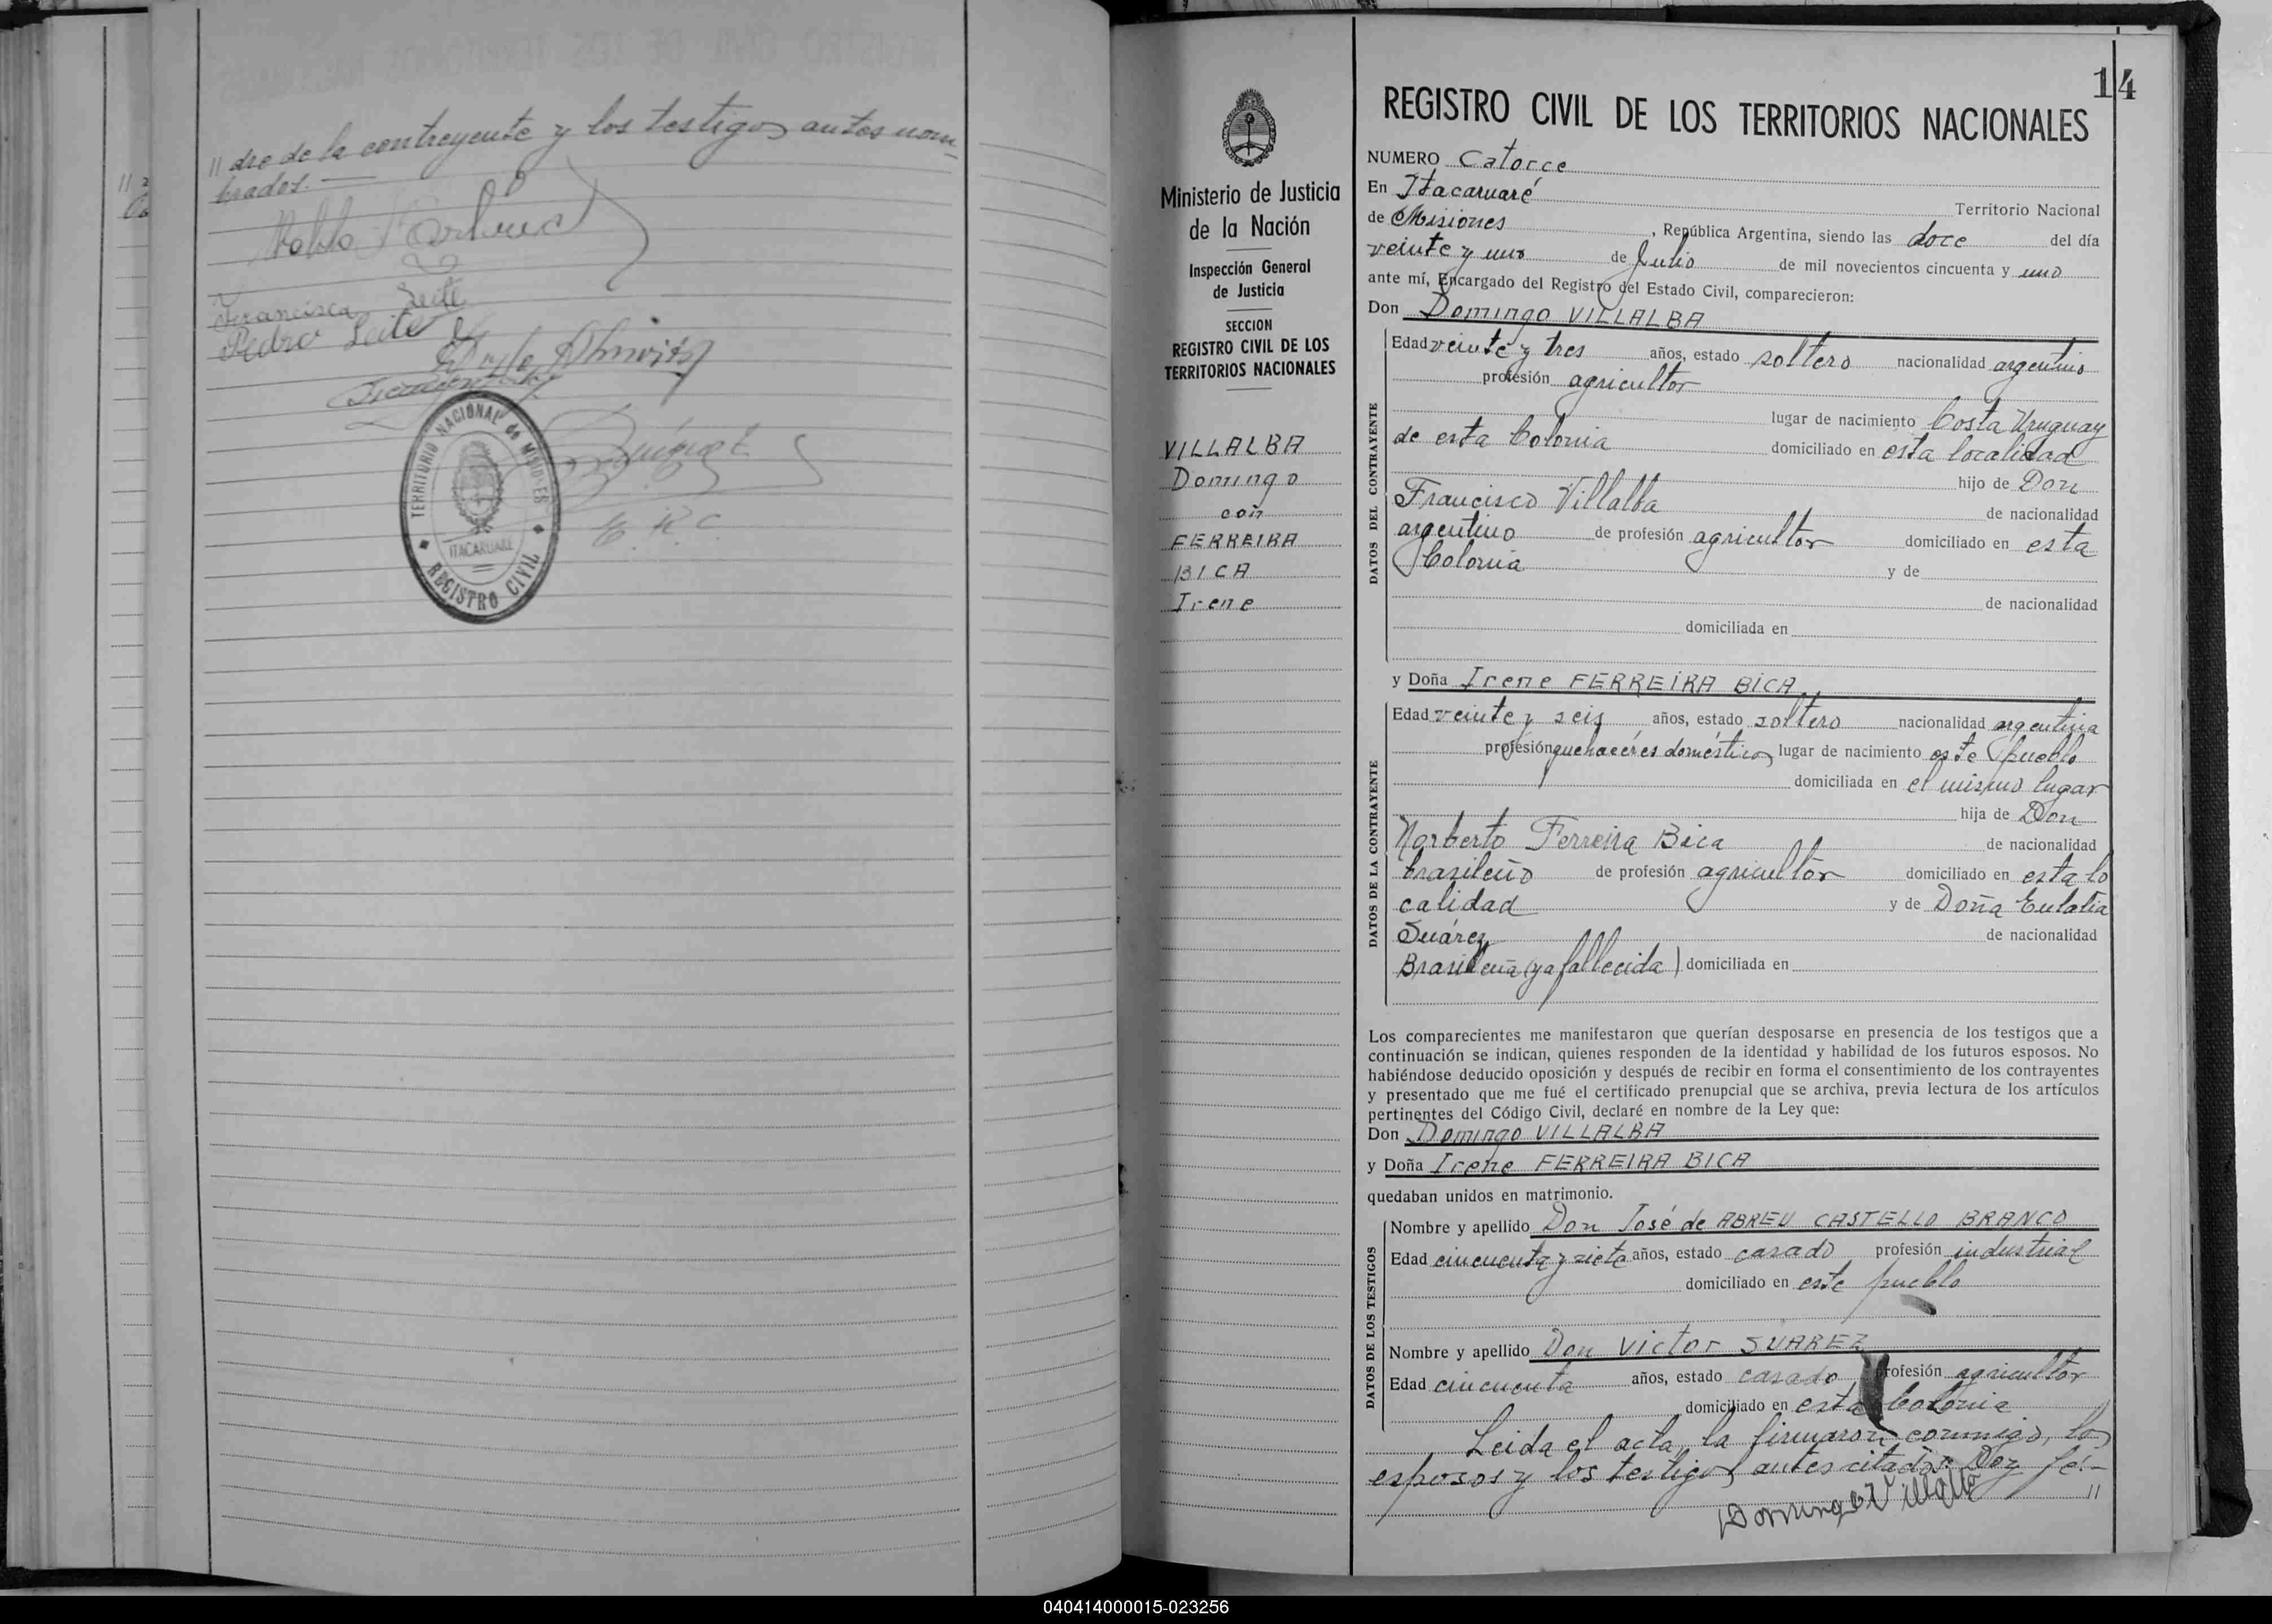 // dre de la contreyente y los testigos antes nom-
brados.—
Pablo
Francisca Leite
Pedro Leite
TERRITORIO NACIONAL de MISIONES
ITACARUARE
REGISTRO CIVIL
E. R. C.
14
Ministerio de Justicia
de la Nación
Inspección General
de Justicia
SECCION
REGISTRO CIVIL DE LOS
TERRITORIOS NACIONALES
VILLALBA
Domingo
con
FERREIRA
BICA
Irene
REGISTRO CIVIL DE LOS TERRITORIOS NACIONALES
NUMERO Catorce
En Itacaruaré Territorio Nacional
de Misiones, República Argentina, siendo las doce del día
veinte y uno de Julio de mil novecientos cincuenta y uno
ante mí, Encargado del Registro del Estado Civil, comparecieron:
Don Domingo VILLALBA
DATOS DEL CONTRAYENTE
Edad veinte y tres años, estado soltero nacionalidad argentino
profesión agricultor
lugar de nacimiento Costa Uruguay
de esta Colonia domiciliado en esta localidad
hijo de Don
Francisco Villalba de nacionalidad
argentino de profesión agricultor domiciliado en esta
Colonia y de
de nacionalidad
domiciliada en
y Doña Irene FERREIRA BICA
DATOS DE LA CONTRAYENTE
Edad veinte y seis años, estado soltero nacionalidad argentina
profesión quehaceres domésticos lugar de nacimiento este pueblo
domiciliada en el mismo lugar
hija de Don
Norberto Ferreira Bica de nacionalidad
brasileño de profesión agricultor domiciliado en esta lo
calidad y de Doña Eulalia
Suárez de nacionalidad
Brasileña (ya fallecida) domiciliada en
Los comparecientes me manifestaron que querían desposarse en presencia de los testigos que a
continuación se indican, quienes responden de la identidad y habilidad de los futuros esposos. No
habiéndose deducido oposición y después de recibir en forma el consentimiento de los contrayentes
y presentado que me fué el certificado prenupcial que se archiva, previa lectura de los artículos
pertinentes del Código Civil, declaré en nombre de la Ley que:
Don Domingo VILLALBA
y Doña Irene FERREIRA BICA
quedaban unidos en matrimonio.
DATOS DE LOS TESTIGOS
Nombre y apellido Don José de ABREU CASTELLO BRANCO
Edad cincuenta y siete años, estado casado profesión industrial
domiciliado en este pueblo
Nombre y apellido Don Victor SUAREZ
Edad cincuenta años, estado casado profesión agricultor
domiciliado en esta Colonia
Leida el acta, la firmaron conmigo, los
esposos y los testigos antes citados. Doy fe.-
//
Domingo Villalba
040414000015-023256